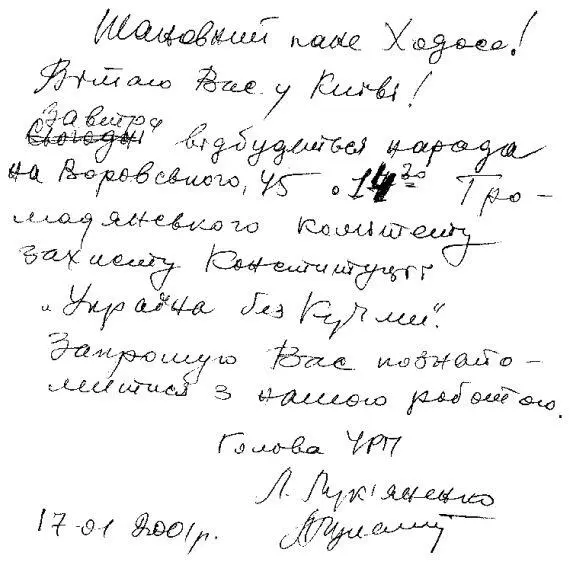 Шановний пане Ходосе!
Вітаю Вас у Києві!
Завтра
Сьогодні відбудеться нарада
на Воровського, 45 о 14 30 Гро-
мадянського комітету
захисту Конституції
„Україна без Кучми".
Запрошую Вас познайо-
митися з нашою роботою.
Голова УРП
Л. Лук'яненко
17 01 2001р.